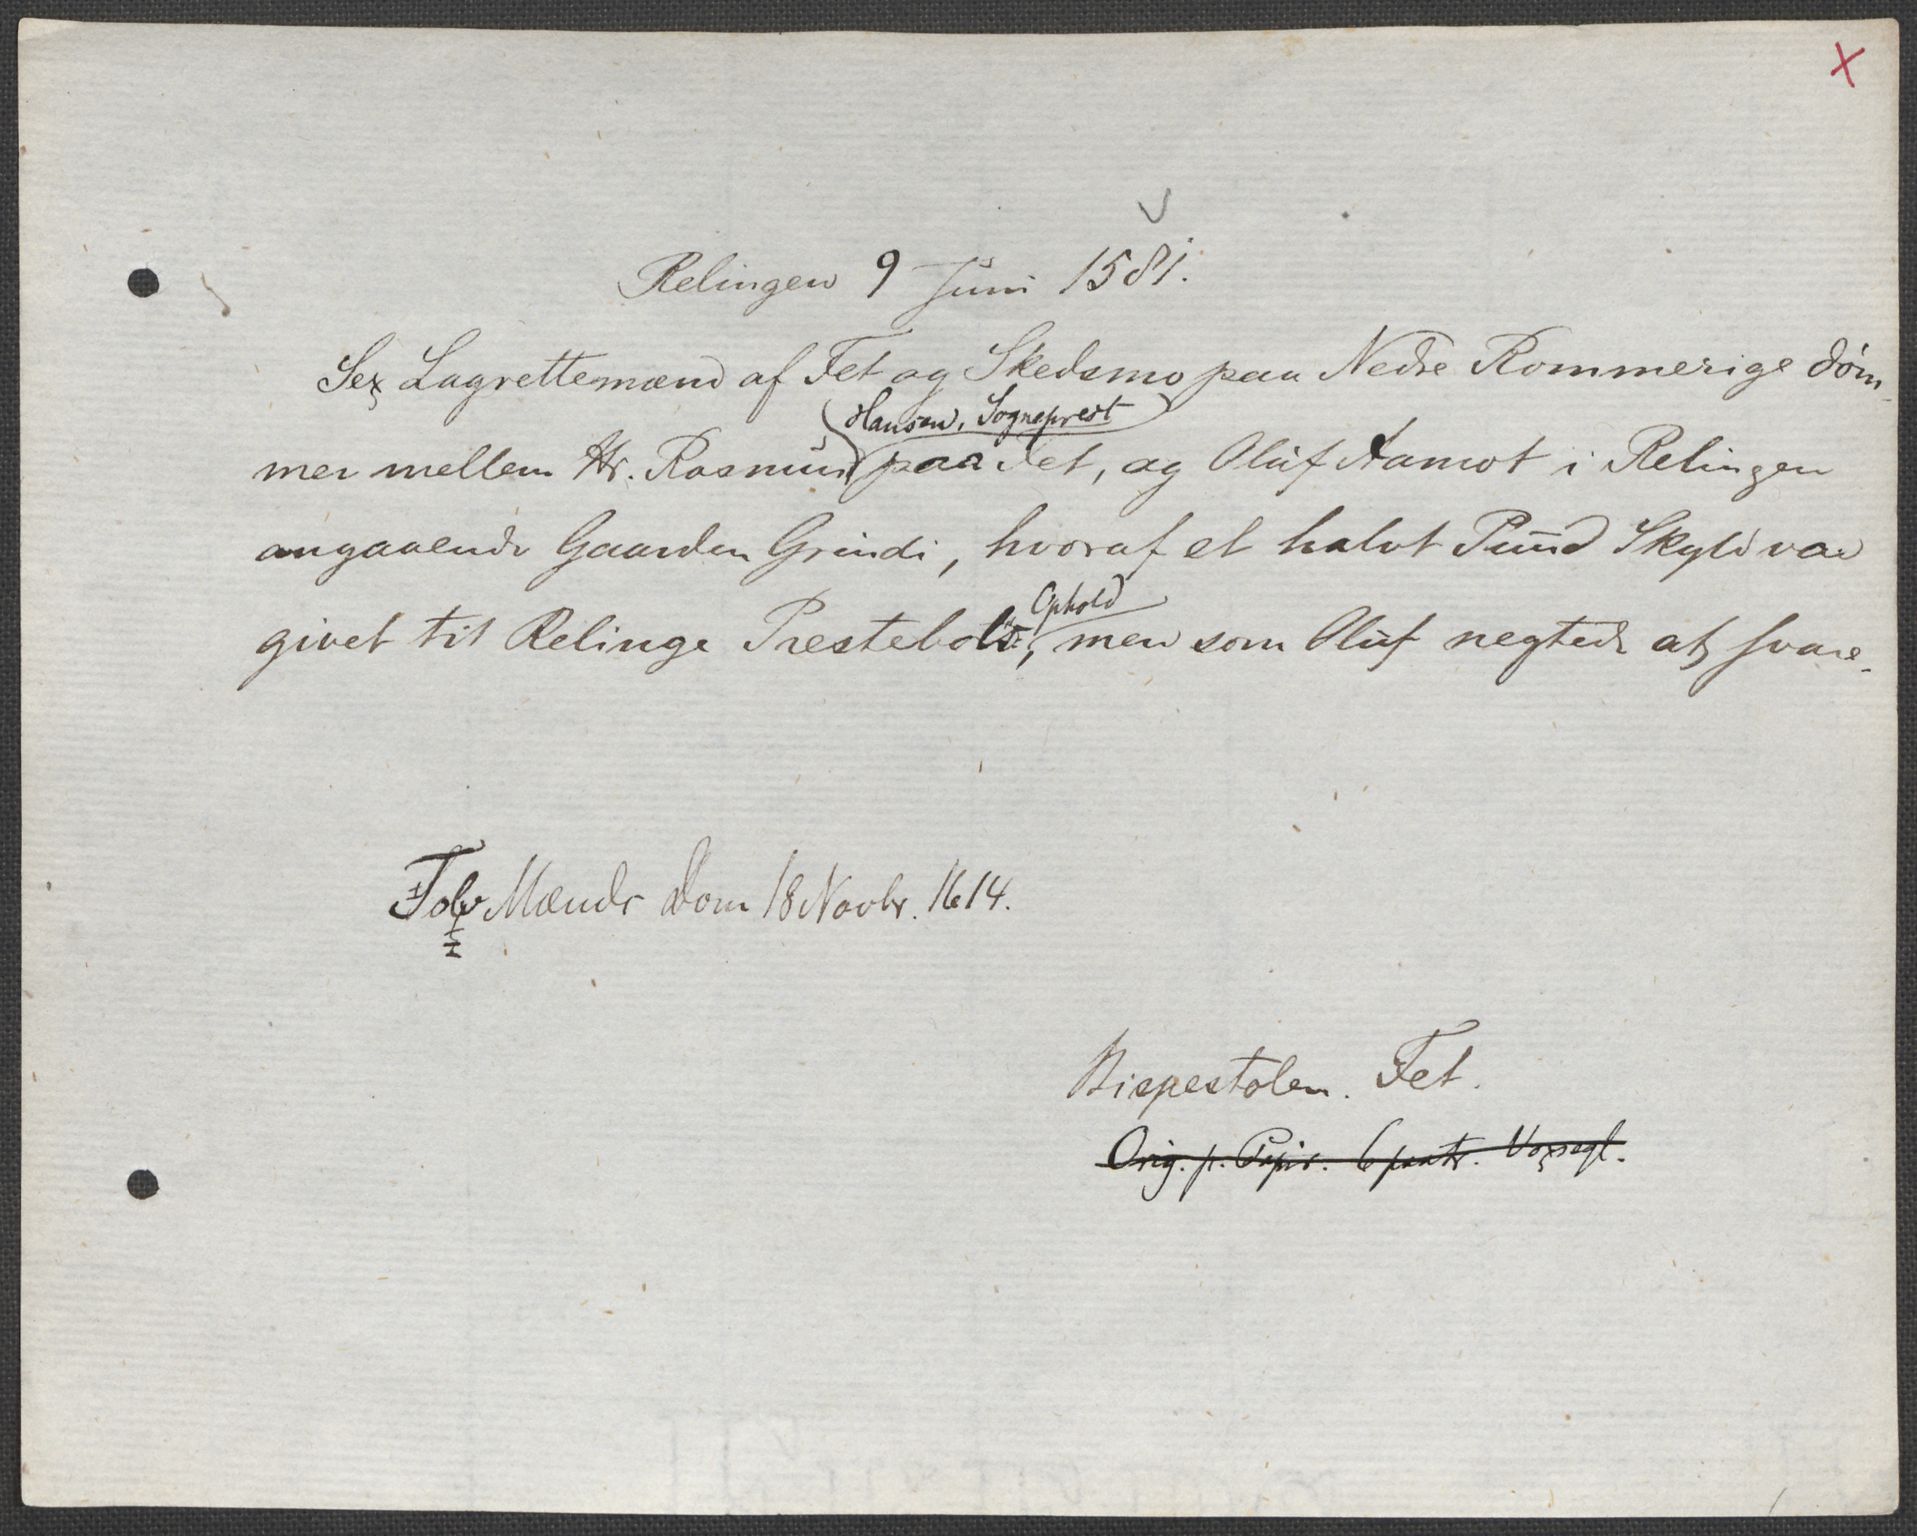 X
Relingen 9 Juni 1581.
Sex Lagrettemænd af Fet og Skedsmo paa Nedre Rommerige døm-
Hansen, Sogneprest
mer mellem Hr. Rasmus paa Fet, og Oluf Aamot i Relingen
angaaende Gaarden Grindi, hvoraf et halvt Pund Skyld var
Ophold
givet til Relinge Prestebols, men som Oluf negtede at svare.
Tolv Mænds Dom 18 Novbr. 1614.
Bispestolen. Fet.
Orig. p. Papir. 6 paatr. Voxsegl.